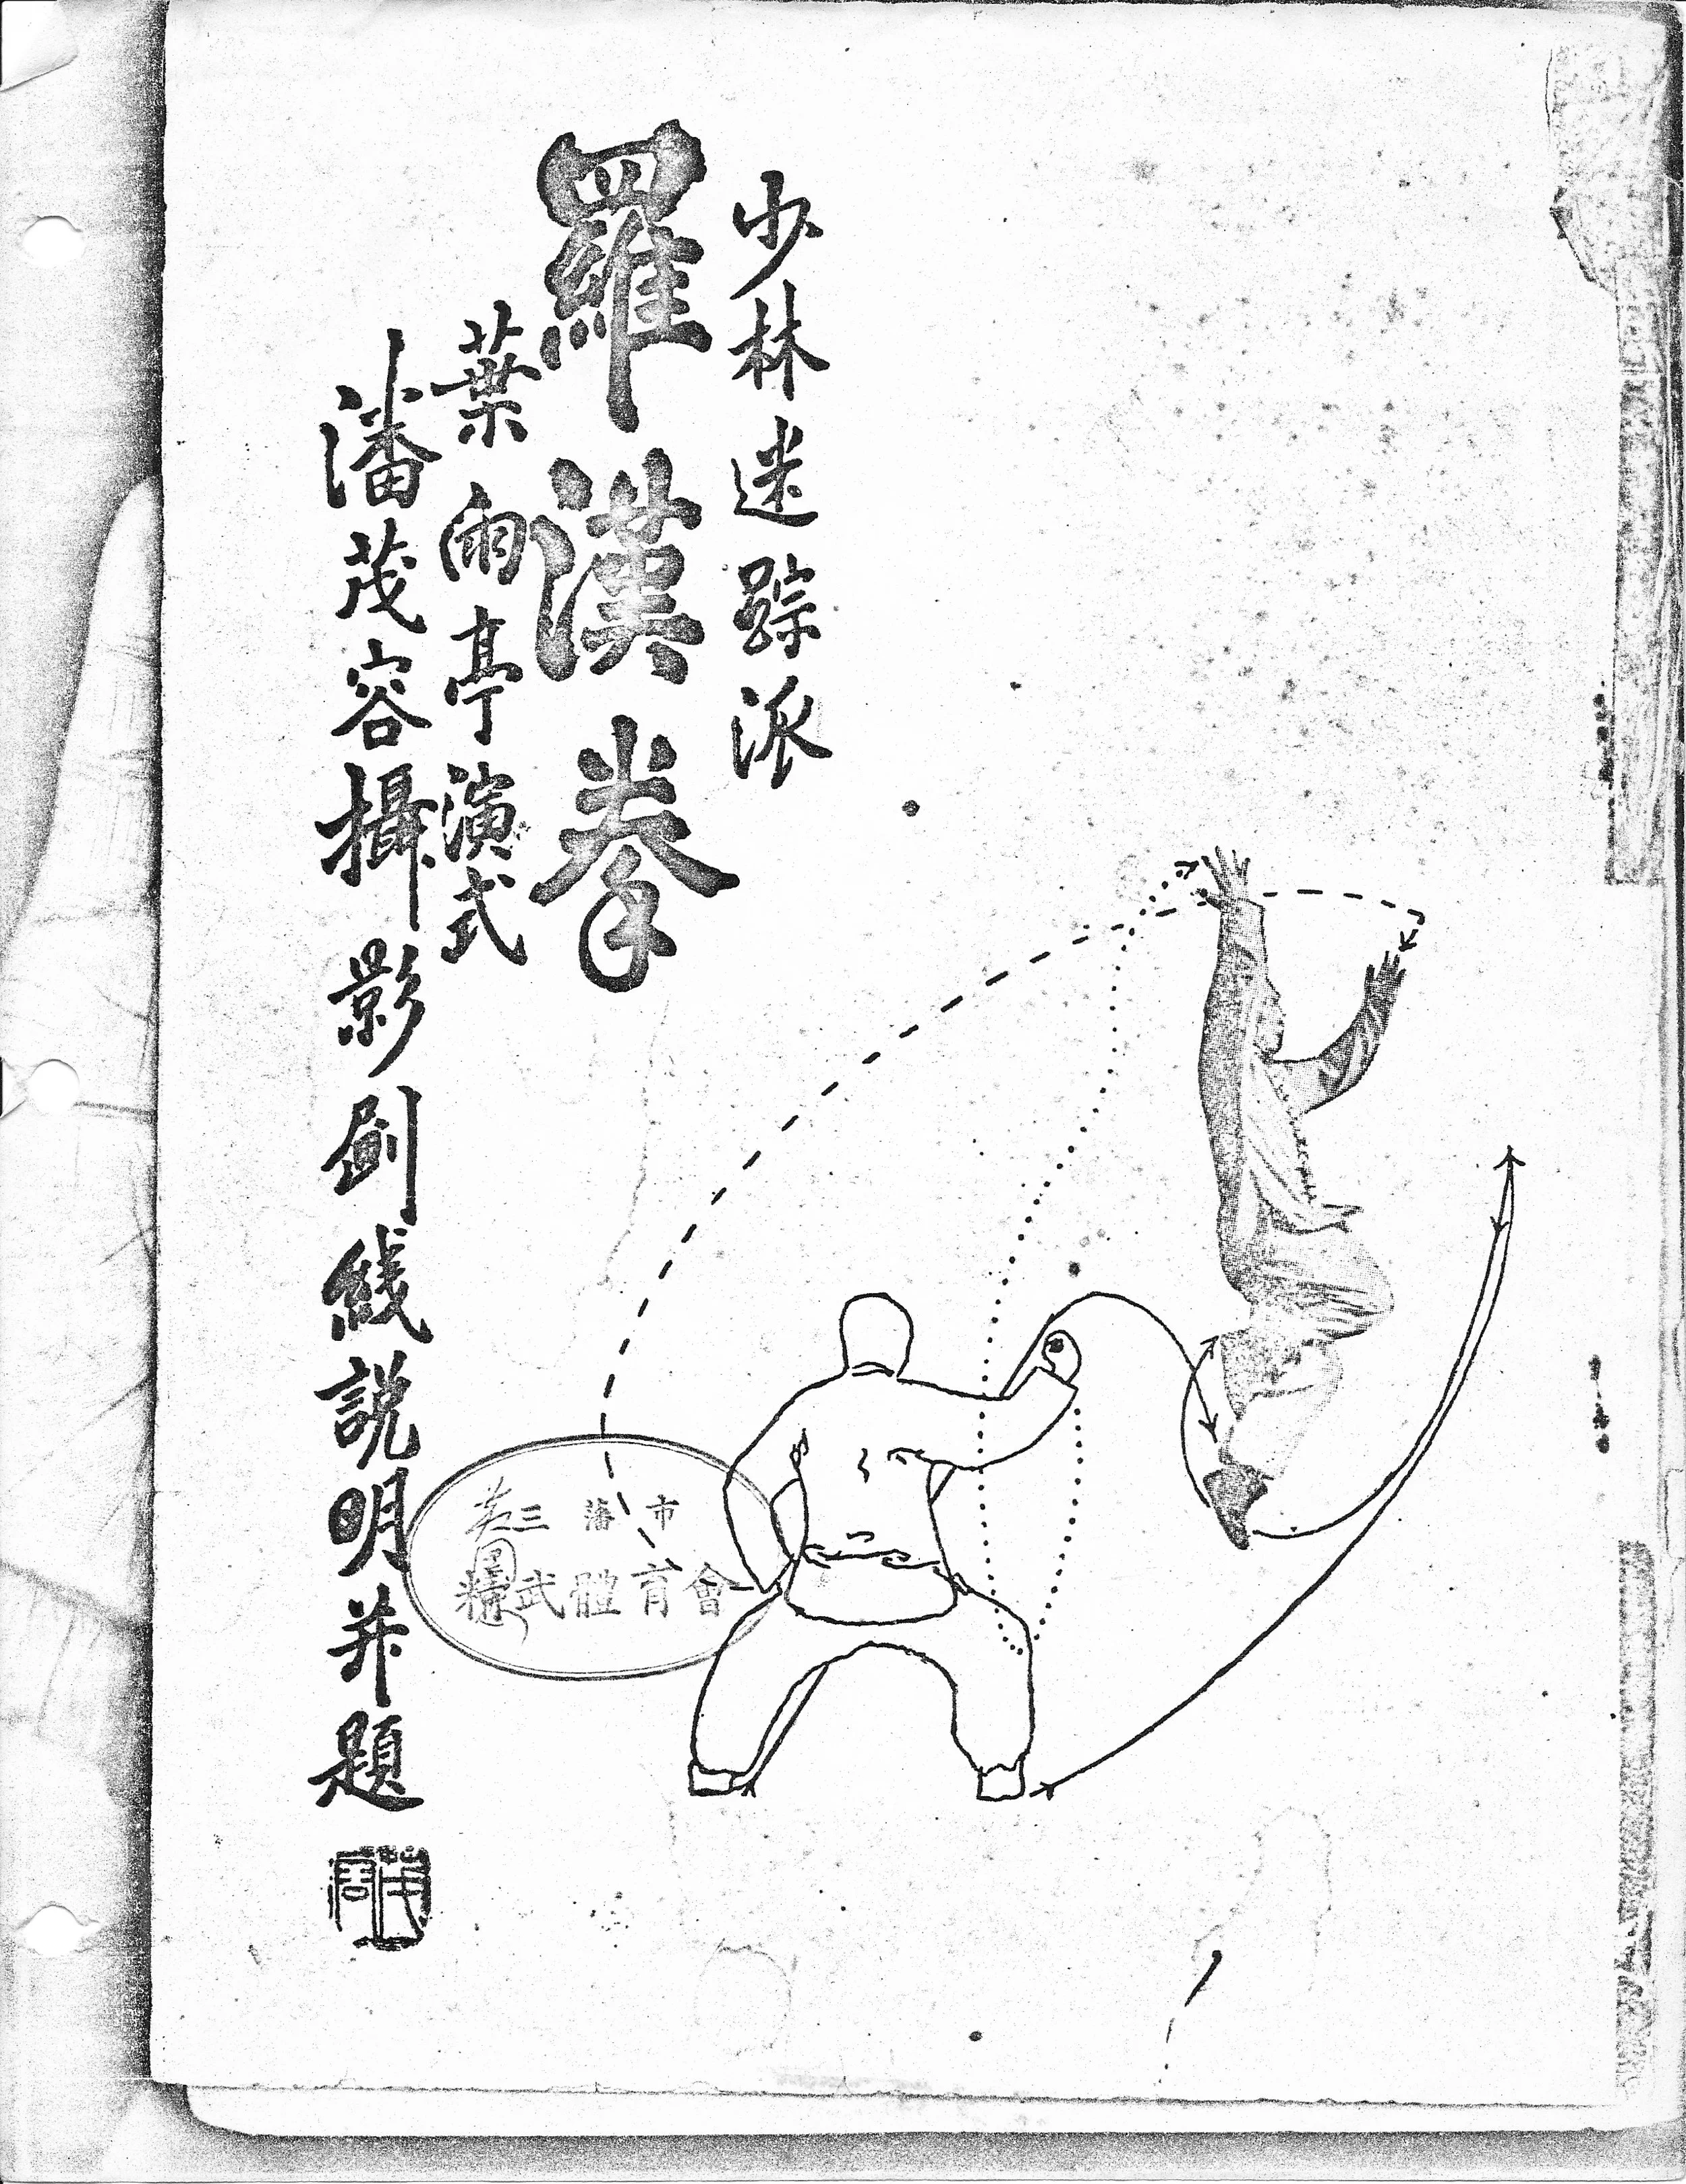 少林迷踪派
羅漢拳
葉雨亭演式
潘茂容攝影劃綫説明并題
三藩市
精武體育會